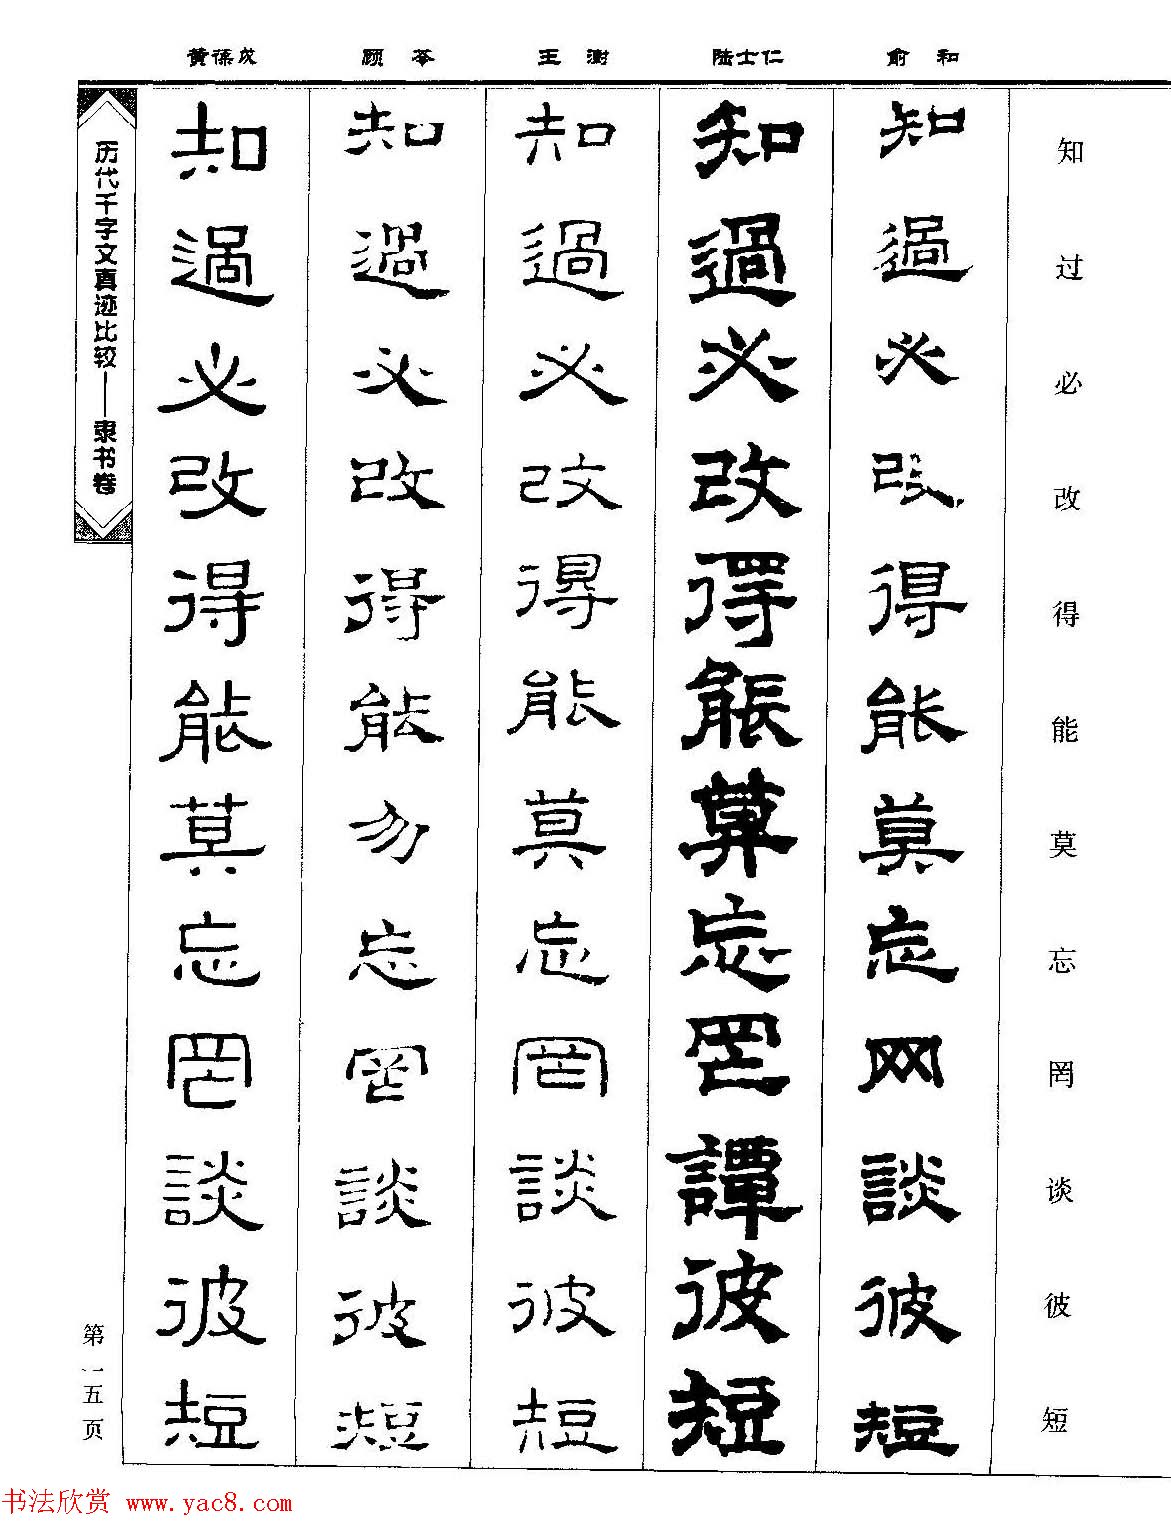 黄葆戉 顾苓 王澍 陆士仁 俞和
知 过 必 改 得 能 莫 忘 罔 谈 彼 短
知 過 必 改 得 能 莫 忘 网 談 彼 短
知 過 必 改 得 能 莫 忘 罔 譚 彼 短
知 過 必 改 得 能 莫 忘 罔 談 彼 短
知 過 必 改 得 能 勿 忘 罔 談 彼 短
知 過 必 改 得 能 莫 忘 罔 談 彼 短
历代千字文真迹比较——隶书卷
第一五页
书法欣赏 www.yac8.com